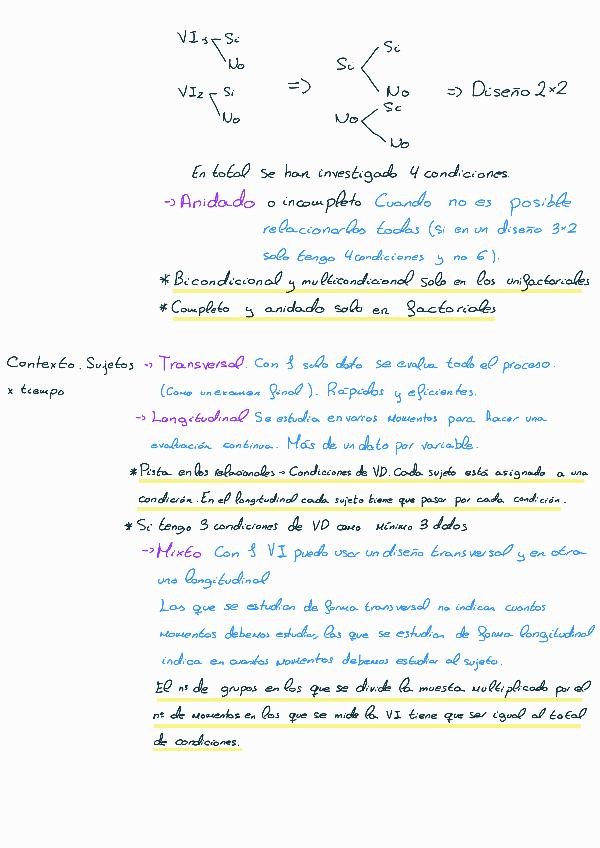 VI1 Si
No
VI2 Si
No
=>
Si Si
No
No Sc
No
=> Diseño 2x2
En total se han investigado 4 condiciones.
-> Anidado o incompleto Cuando no es posible
relacionarlos todas (si en un diseño 3x2
solo tengo 4 condiciones y no 6).
* Bicondicional y multicondicional solo en los unifactoriales
* Completo y anidado solo en factoriales
Contexto. Sujetos -> Transversal. Con 1 solo dato se evalua todo el proceso.
x tiempo (Como un examen final). Rápidos y eficientes.
-> Longitudinal Se estudia en varios momentos para hacer una
evaluación continua. Más de un dato por variable.
* Pista en los relacionales -> Condiciones de VD. Cada sujeto está asignado a una
condición. En el longitudinal cada sujeto tiene que pasar por cada condición.
* Si tengo 3 condiciones de VD como mínimo 3 datos
-> Mixto Con 1 VI puedo usar un diseño transversal y en otra
uno longitudinal
Las que se estudian de forma transversal no indican cuantos
momentos debemos estudiar, las que se estudian de forma longitudinal
indica en cuantos momentos debemos estudiar al sujeto.
El nº de grupos en los que se divide la muesta multiplicado por el
nº de momentos en los que se mide la VI tiene que ser igual al total
de condiciones.